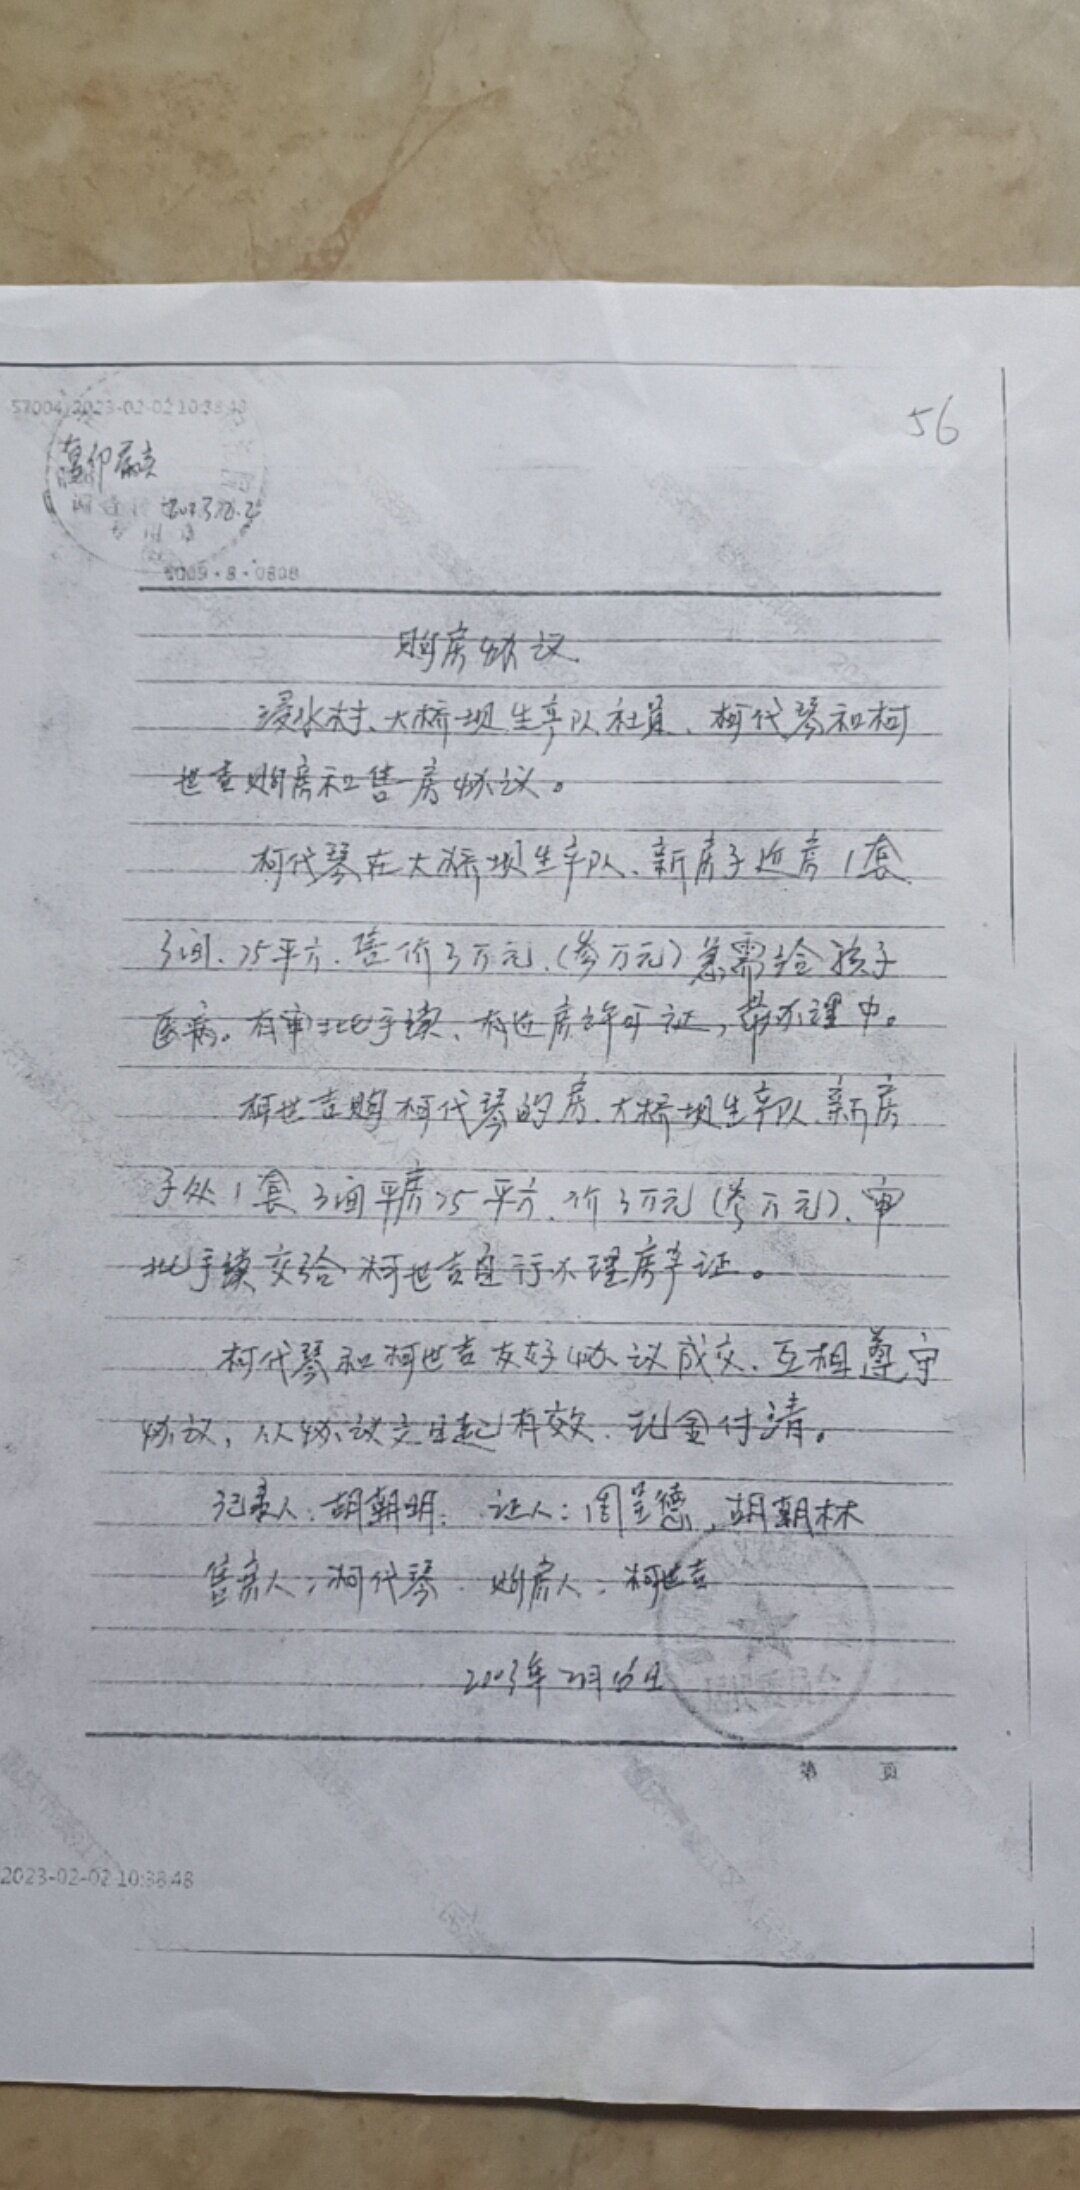 57004 2023-02-02 10:38:48
56
2009·8·0808
购房协议
浸水村、大桥坝生产队社员、柯代琴和柯
世吉购房和售房协议。
柯代琴在大桥坝生产队、新房子近房1套
3间、75平方、售价3万元、(叁万元)急需给孩子
医病。有审批手续、有近房许可证,带办理中。
柯世吉购柯代琴的房、大桥坝生产队、新房
子处1套3间平房75平方、价3万元(叁万元)、审
批手续交给柯世吉自行办理房产证。
柯代琴和柯世吉友好协议成交、互相遵守
协议,从协议之日起有效、现金付清。
记录人:胡朝明、证人:周呈德,胡朝林
售房人:柯代琴. 购房人:柯世吉
2003年2月16日
第 页
2023-02-02 10:38:48